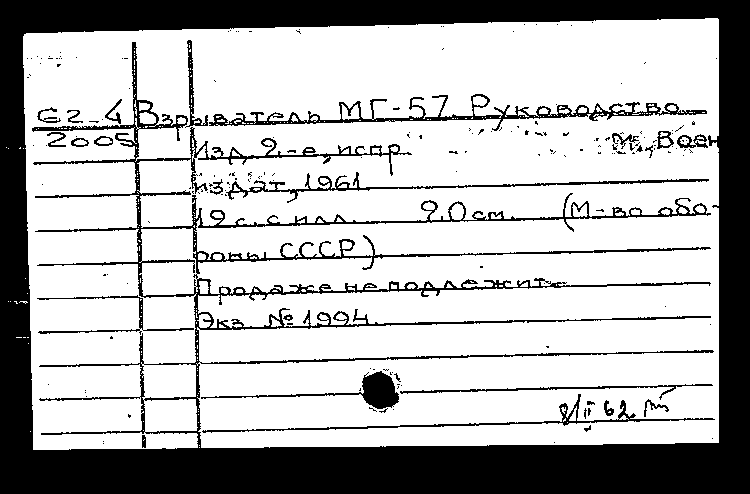 62-4 Взрыватель МГ-57. Руководство.
2005 Изд. 2-е, испр. М., Воен
издат, 1961.
19 с. с илл. 20 см. (М-во обо-
роны СССР).
Продаже не подлежит.
Экз. № 1994.
8/II 62